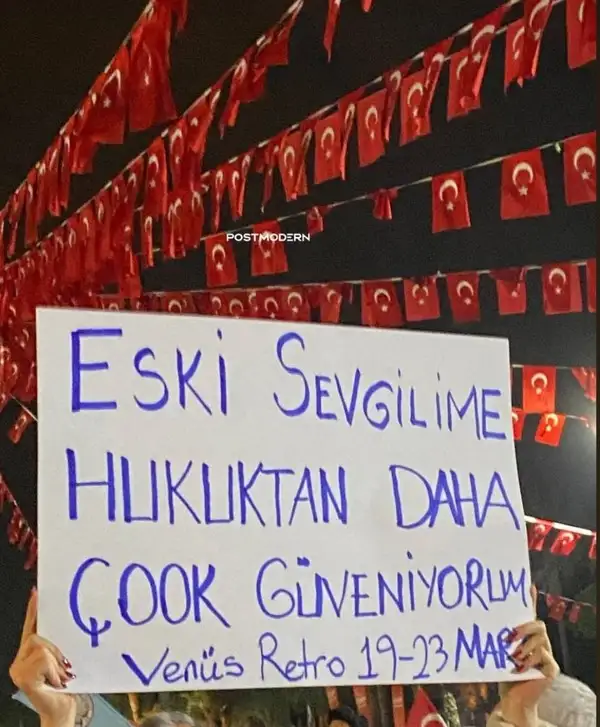 POSTMODERN
ESKİ SEVGİLİME
HUKUKTAN DAHA
ÇOOK GÜVENİYORUM
Venüs Retro 19-23 MAR